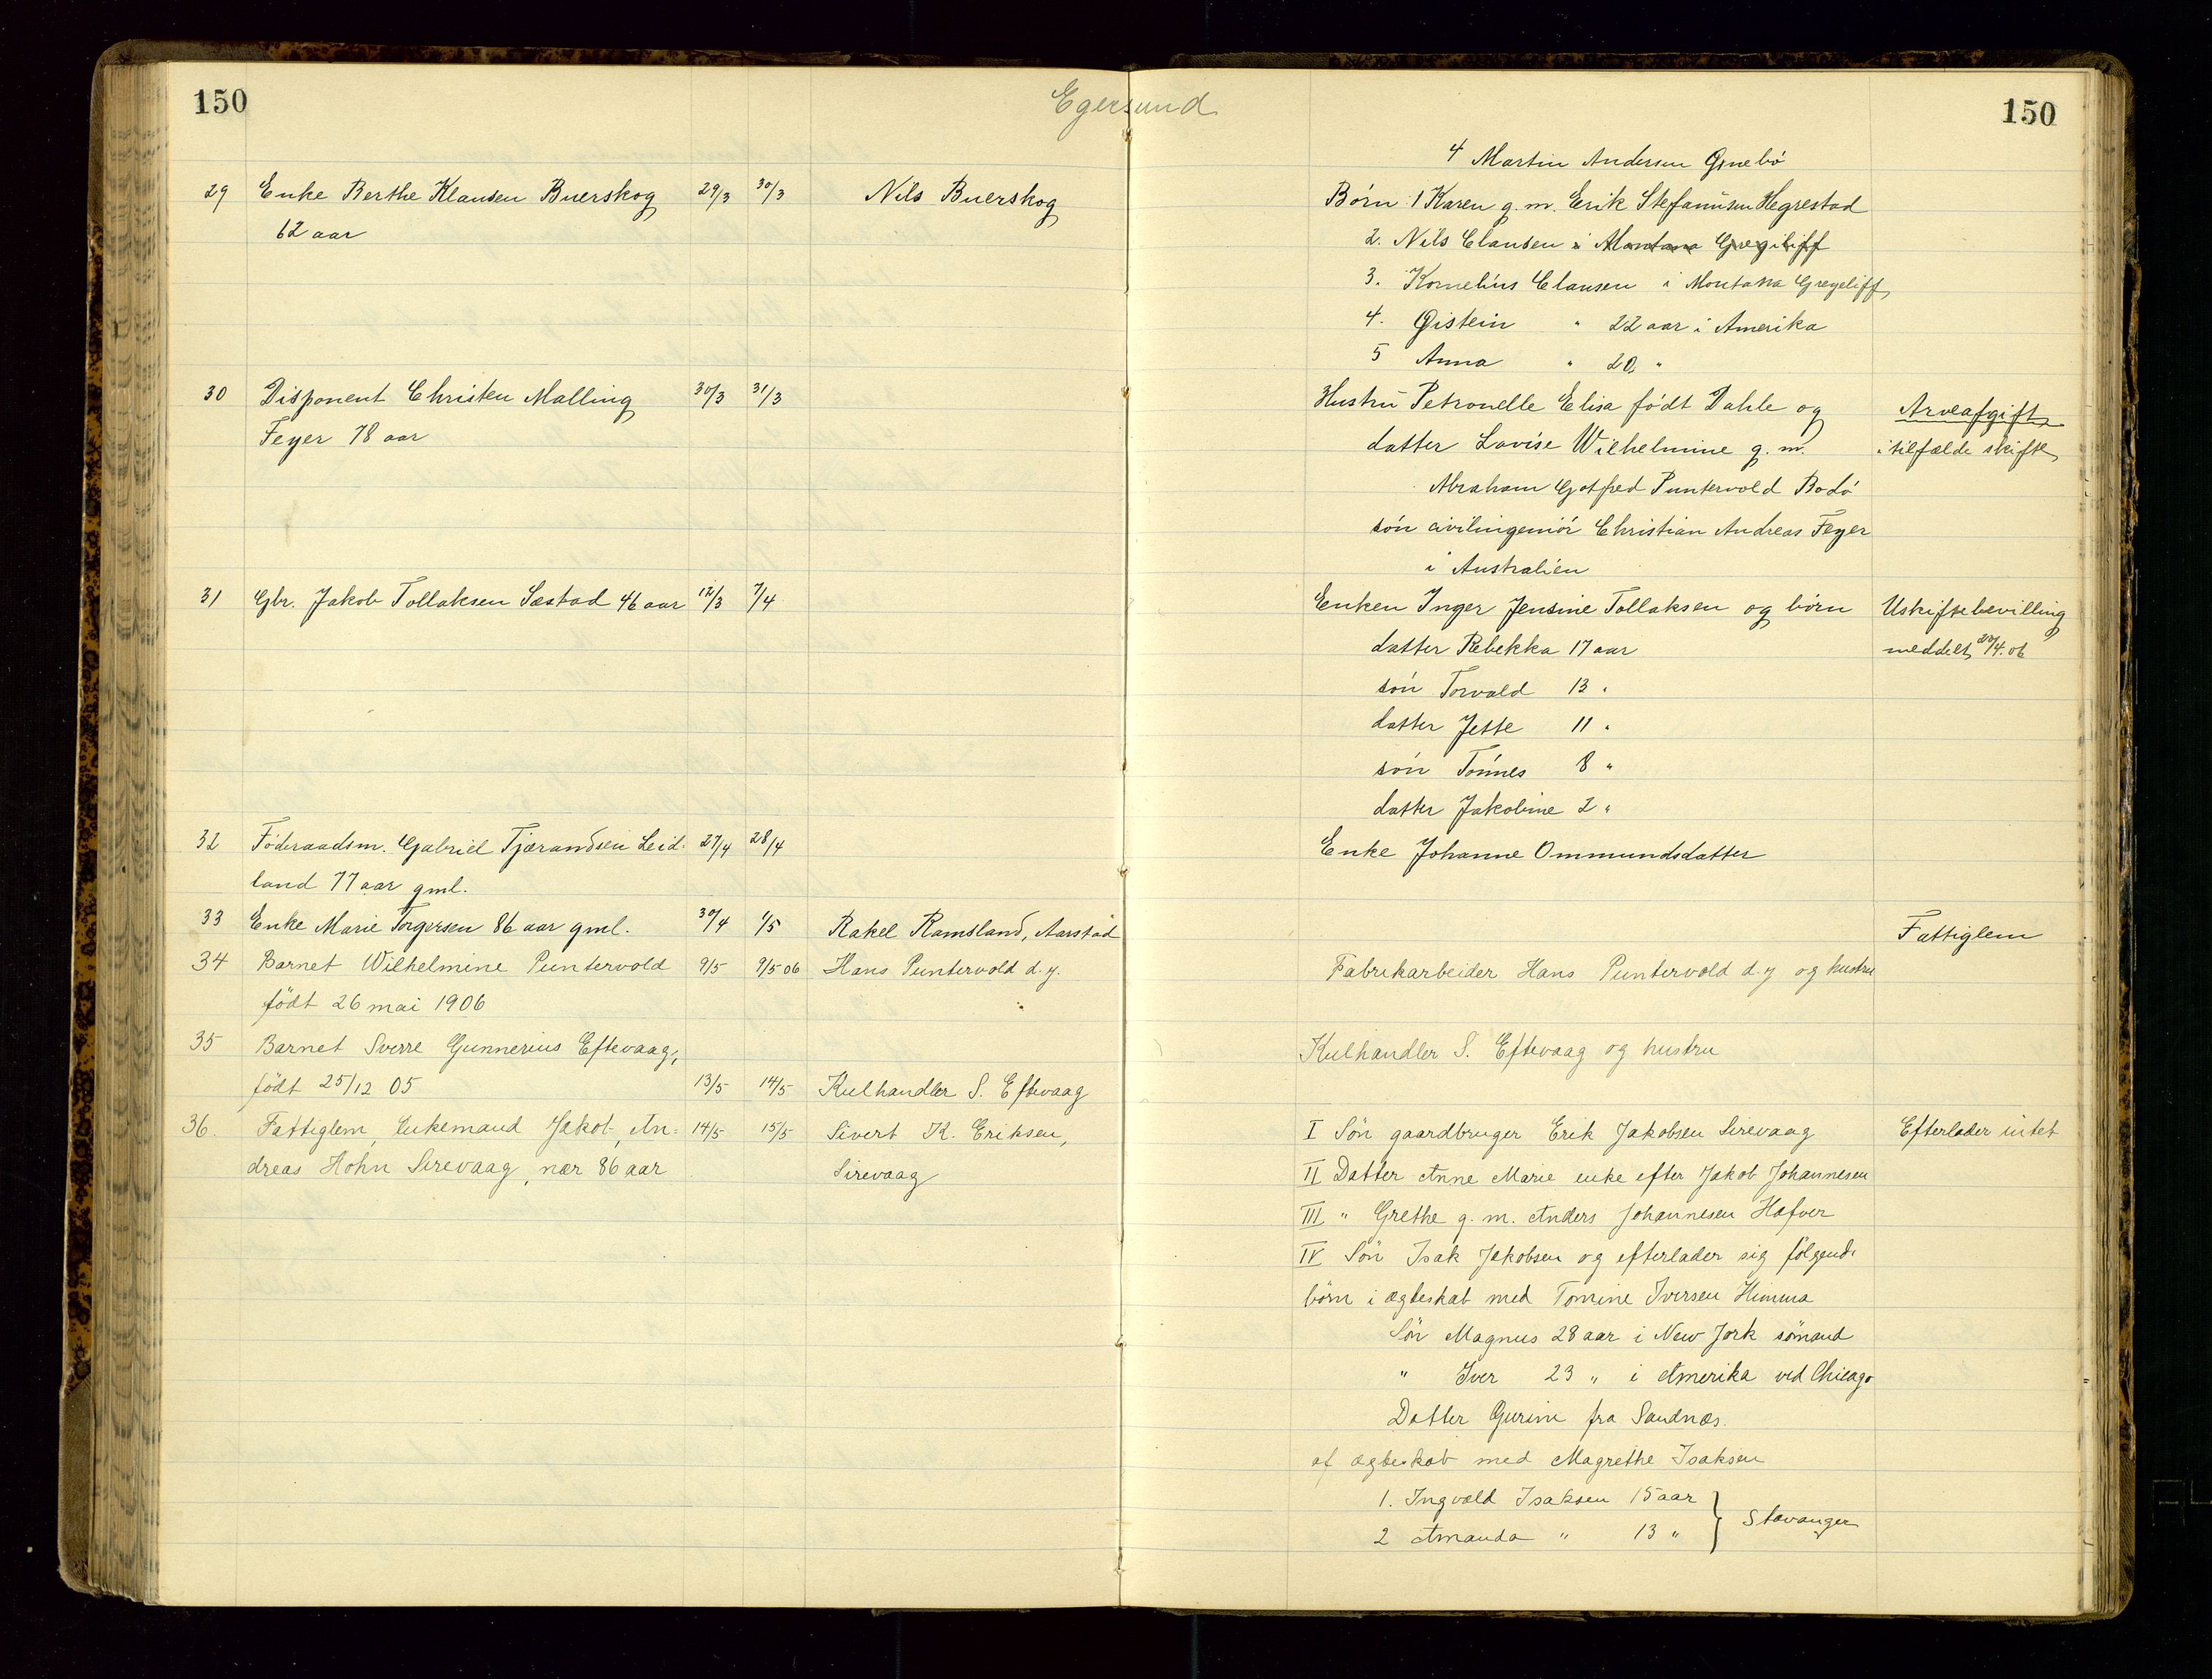 150
Egersund
150
4 Martin Andersen Gjnebö
29 Enke Berthe Klausen Buerskog 29/3 30/3 Nils Buerskog Börn: 1 Karen g. m. Erik Stefanusen Hegrestad
62 aar
2. Nils Clausen i Montana Gregiliff
3. Kornelius Clausen i Montana Gregeliff
4. Øistein " 22 aar i Amerika
5 Anna " 20 "
30 Disponent Christen Malling 30/3 31/3 Hustru Petronelle Elisa födt Dahle og Arveafgift
Feyer 78 aar datter Lovise Wilhelmine g. m. i tilfælde skifte
Abraham Gotfred Puntervold Bodö
sön civilingeniör Christian Andreas Feyer
i Australien
31 Gbr. Jakob Tollaksen Sæstad 46 aar 12/3 7/4 Enken Inger Jensine Tollaksen og börn Uskiftebevilling
datter Rebekka 17 aar meddelt 20/4.06
sön Torvald 13 "
datter Jette 11 "
sön Tönnes 8 "
datter Jakobine 2 "
32 Föderaadsm. Gabriel Tjærandsen Leid- 27/4 28/4 Enke Johanne Ommundsdatter
land 77 aar gml.
33 Enke Marie Torgersen 86 aar gml. 30/4 1/5 Rakel Ramsland, Aarstad Fattiglem
34 Barnet Wilhelmine Puntervold 9/5 9/5 06 Hans Puntervold d. y. Fabrikarbeider Hans Puntervold d. y og hustru
födt 26 mai 1906
35 Barnet Sverre Gunnerius Eftevaag, Kulhandler S. Eftevaag og hustru
födt 25/12 05 13/5 14/5 Kulhandler S. Eftevaag
36. Fattiglem, Enkemand Jakob An= 14/5 15/5 Sivert K. Eriksen, I Sön gaardbruger Erik Jakobsen Sirevaag Efterlader intet
dreas Hohn Sirevaag, nær 86 aar Sirevaag II Datter Anne Marie enke efter Jakob Johannesen
III " Grethe g. m. Anders Johannesen Hafver
IV Sön Isak Jakobsen og efterlader sig fölgende
börn i ægteskab med Tomine Iversen Himma
Sön Magnus 28 aar i New Jork sömand
" Iver 23 " i Amerika ved Chicago
Datter Gurine fra Sandnæs.
af ægteskab med Magrethe Isaksen
1. Ingvald Isaksen 15 aar
2 Amanda " 13 " } Stavanger